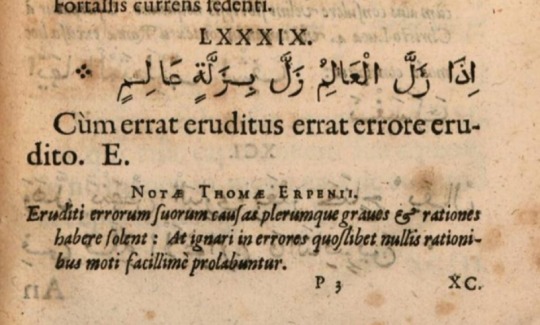 Fortassis currens sedenti.
LXXXIX.
اِذَا زَلَّ الْعَالِمُ زَلَّ بِزَلَّةٍ عَالِمٍ ܀
Cùm errat eruditus errat errore eru-
dito. E.
NOTÆ THOMÆ ERPENII.
Eruditi errorum ſuorum cauſas plerumque graues & rationes
habere ſolent : At ignari in errores quoſlibet nullis rationi-
bus moti facillimè prolabuntur.
P 3 XC.